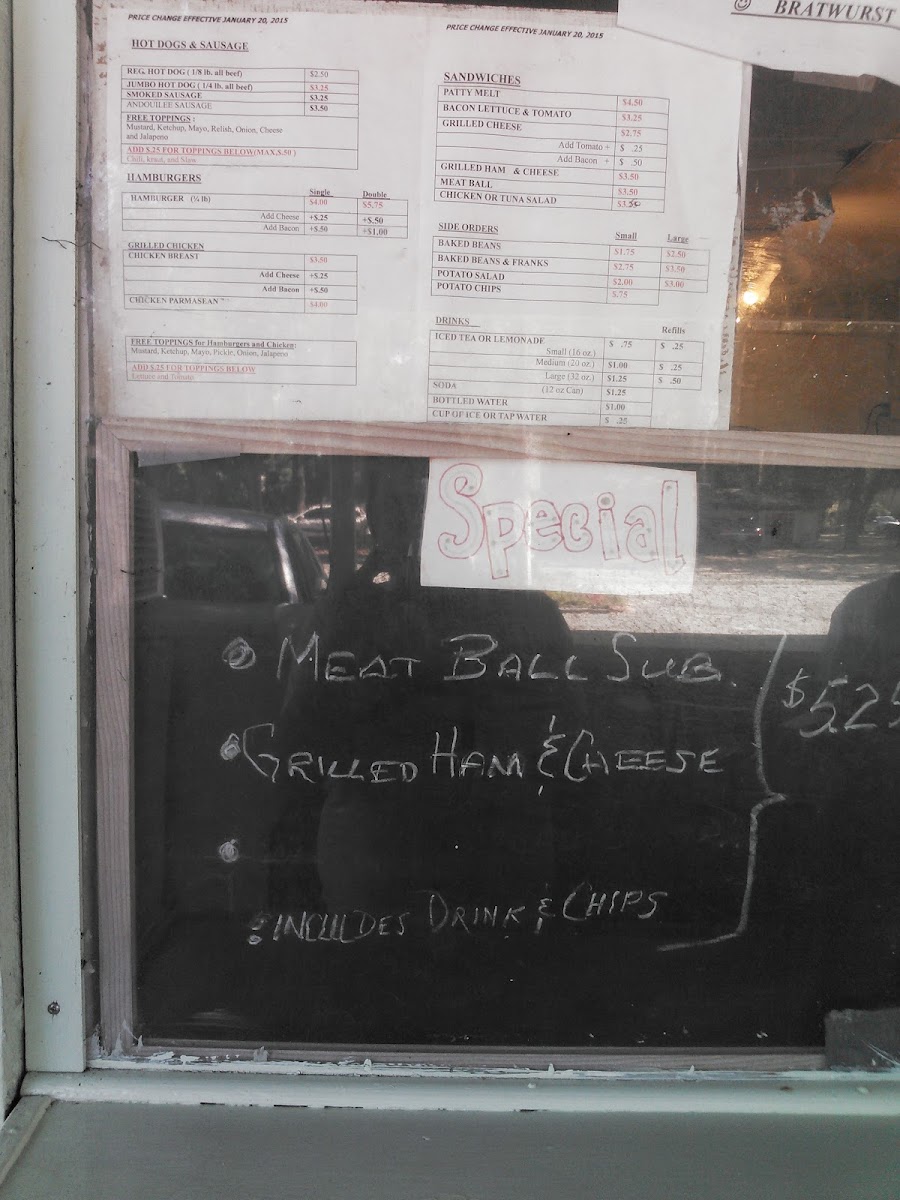 BRATWURST
PRICE CHANGE EFFECTIVE JANUARY 20, 2015
HOT DOGS & SAUSAGE
REG. HOT DOG ( 1/8 lb. all beef) $2.50
JUMBO HOT DOG ( 1/4 lb. all beef) $3.25
SMOKED SAUSAGE $3.25
ANDOUILEE SAUSAGE $3.50
FREE TOPPINGS :
Mustard, Ketchup, Mayo, Relish, Onion, Cheese
and Jalapeno
ADD $.25 FOR TOPPINGS BELOW(MAX.$.50 )
Chili, kraut, and Slaw
HAMBURGERS
Single Double
HAMBURGER (¼ lb) $4.00 $5.75
Add Cheese +$.25 +$.50
Add Bacon +$.50 +$1.00
GRILLED CHICKEN
CHICKEN BREAST $3.50
Add Cheese +$.25
Add Bacon +$.50
CHICKEN PARMASEAN $4.00
FREE TOPPINGS for Hamburgers and Chicken:
Mustard, Ketchup, Mayo, Pickle, Onion, Jalapeno
ADD $.25 FOR TOPPINGS BELOW
Lettuce and Tomato
PRICE CHANGE EFFECTIVE JANUARY 20, 2015
SANDWICHES
PATTY MELT $4.50
BACON LETTUCE & TOMATO $3.25
GRILLED CHEESE $2.75
Add Tomato + $ .25
Add Bacon + $ .50
GRILLED HAM & CHEESE $3.50
MEAT BALL $3.50
CHICKEN OR TUNA SALAD $3.50
SIDE ORDERS Small Large
BAKED BEANS $1.75 $2.50
BAKED BEANS & FRANKS $2.75 $3.50
POTATO SALAD $2.00 $3.00
POTATO CHIPS $.75
DRINKS Refills
ICED TEA OR LEMONADE
Small (16 oz.) $ .75 $ .25
Medium (20 oz.) $1.00 $ .25
Large (32 oz.) $1.25 $ .50
SODA (12 oz Can) $1.25
BOTTLED WATER $1.00
CUP OF ICE OR TAP WATER $ .25
Special
MEAT BALL SUB.
GRILLED HAM & CHEESE
$5.25
INCLUDES DRINK & CHIPS